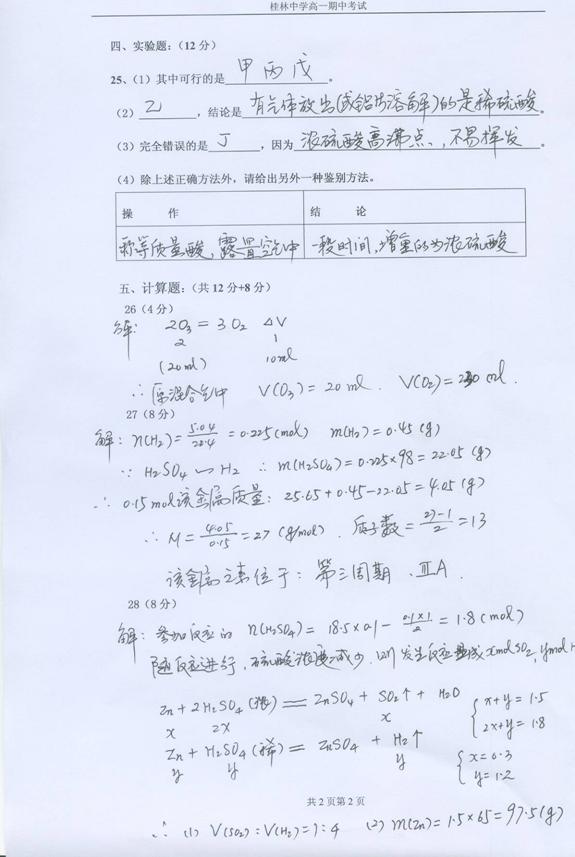 桂林中学高一期中考试
四、实验题：（12 分）
25、（1）其中可行的是 甲 丙 戊 。
（2） 乙 ，结论是 有气体放出(或铝片溶解)的是稀硫酸。
（3）完全错误的是 丁 ，因为 浓硫酸高沸点、不易挥发 。
（4）除上述正确方法外，请给出另外一种鉴别方法。
操 作 结 论
称等质量酸，露置空气中 一段时间，增重的为浓硫酸
五、计算题：（共 12 分+8分）
26（4 分）
解： 2O₃ = 3O₂ ΔV
2 1
(20ml) 10ml
∴ 原混合气中 V(O₃) = 20 ml . V(O₂) = ml .
27（8 分）
解：n(H₂) = 5.04/22.4 = 0.225(mol) m(H₂) = 0.45 (g)
∵ H₂SO₄ ~ H₂ ∴ m(H₂SO₄) = 0.225×98 = 22.05 (g)
∴ 0.15 mol该金属质量：25.65 + 0.45 − 22.05 = 4.05 (g)
∴ M = 4.05/0.15 = 27 (g/mol) . 质子数 = (27−1)/2 = 13
该金属元素位于：第三周期 . ⅢA .
28（8 分）
解：参加反应的 n(H₂SO₄) = 18.5×0.1 − (0.1×1)/2 = 1.8 (mol)
随反应进行，硫酸浓度减少，发生反应 xmol SO₂, ymol H
Zn + 2H₂SO₄ (浓) = ZnSO₄ + SO₂↑ + H₂O { x+y = 1.5
x 2x x 2x+y = 1.8
Zn + H₂SO₄ (稀) = ZnSO₄ + H₂↑ { x = 0.3
y y y y = 1.2
共 2 页第 2 页
∴ (1) V(SO₂) : V(H₂) = 1 : 4 (2) m(Zn) = 1.5×65 = 97.5(g)